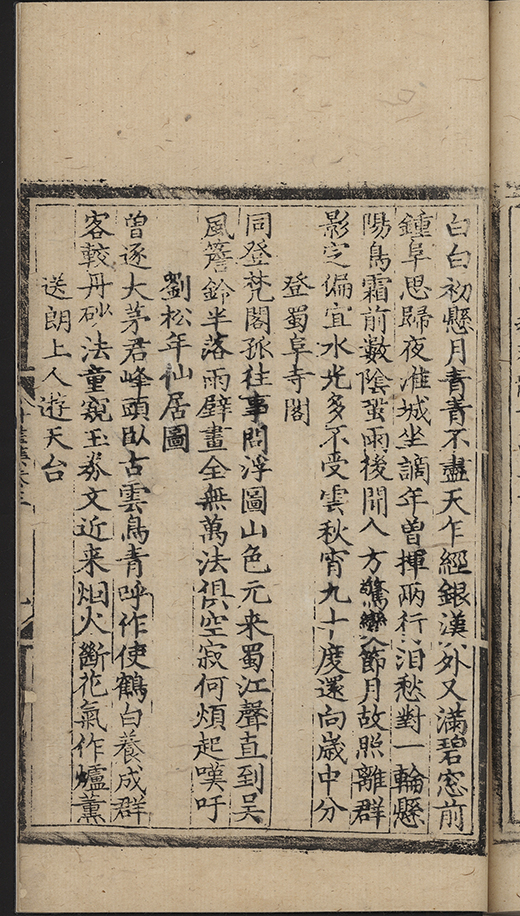 白白初懸月青青不盡天乍經銀漢外又滿碧窓前
鍾阜思歸夜淮城坐謫年曾揮兩行泪愁對一輪懸
陽鳥霜前數陰螢雨後聞入方驚變節月故照離群
影定偏宜水光多不受雲秋宵九十度還向歲中分
登蜀阜寺閣
同登梵閣孤往事問浮圖山色元来蜀江聲直到吳
風簷鈴半落雨壁畫全無萬法俱空寂何煩起嘆吁
劉松年仙居圖
曾逐大茅君峰頭卧古雲鳥青呼作使鶴白養成群
客較丹砂法童窺玉券文近来烟火斷花氣作爐薰
送朗上人遊天台